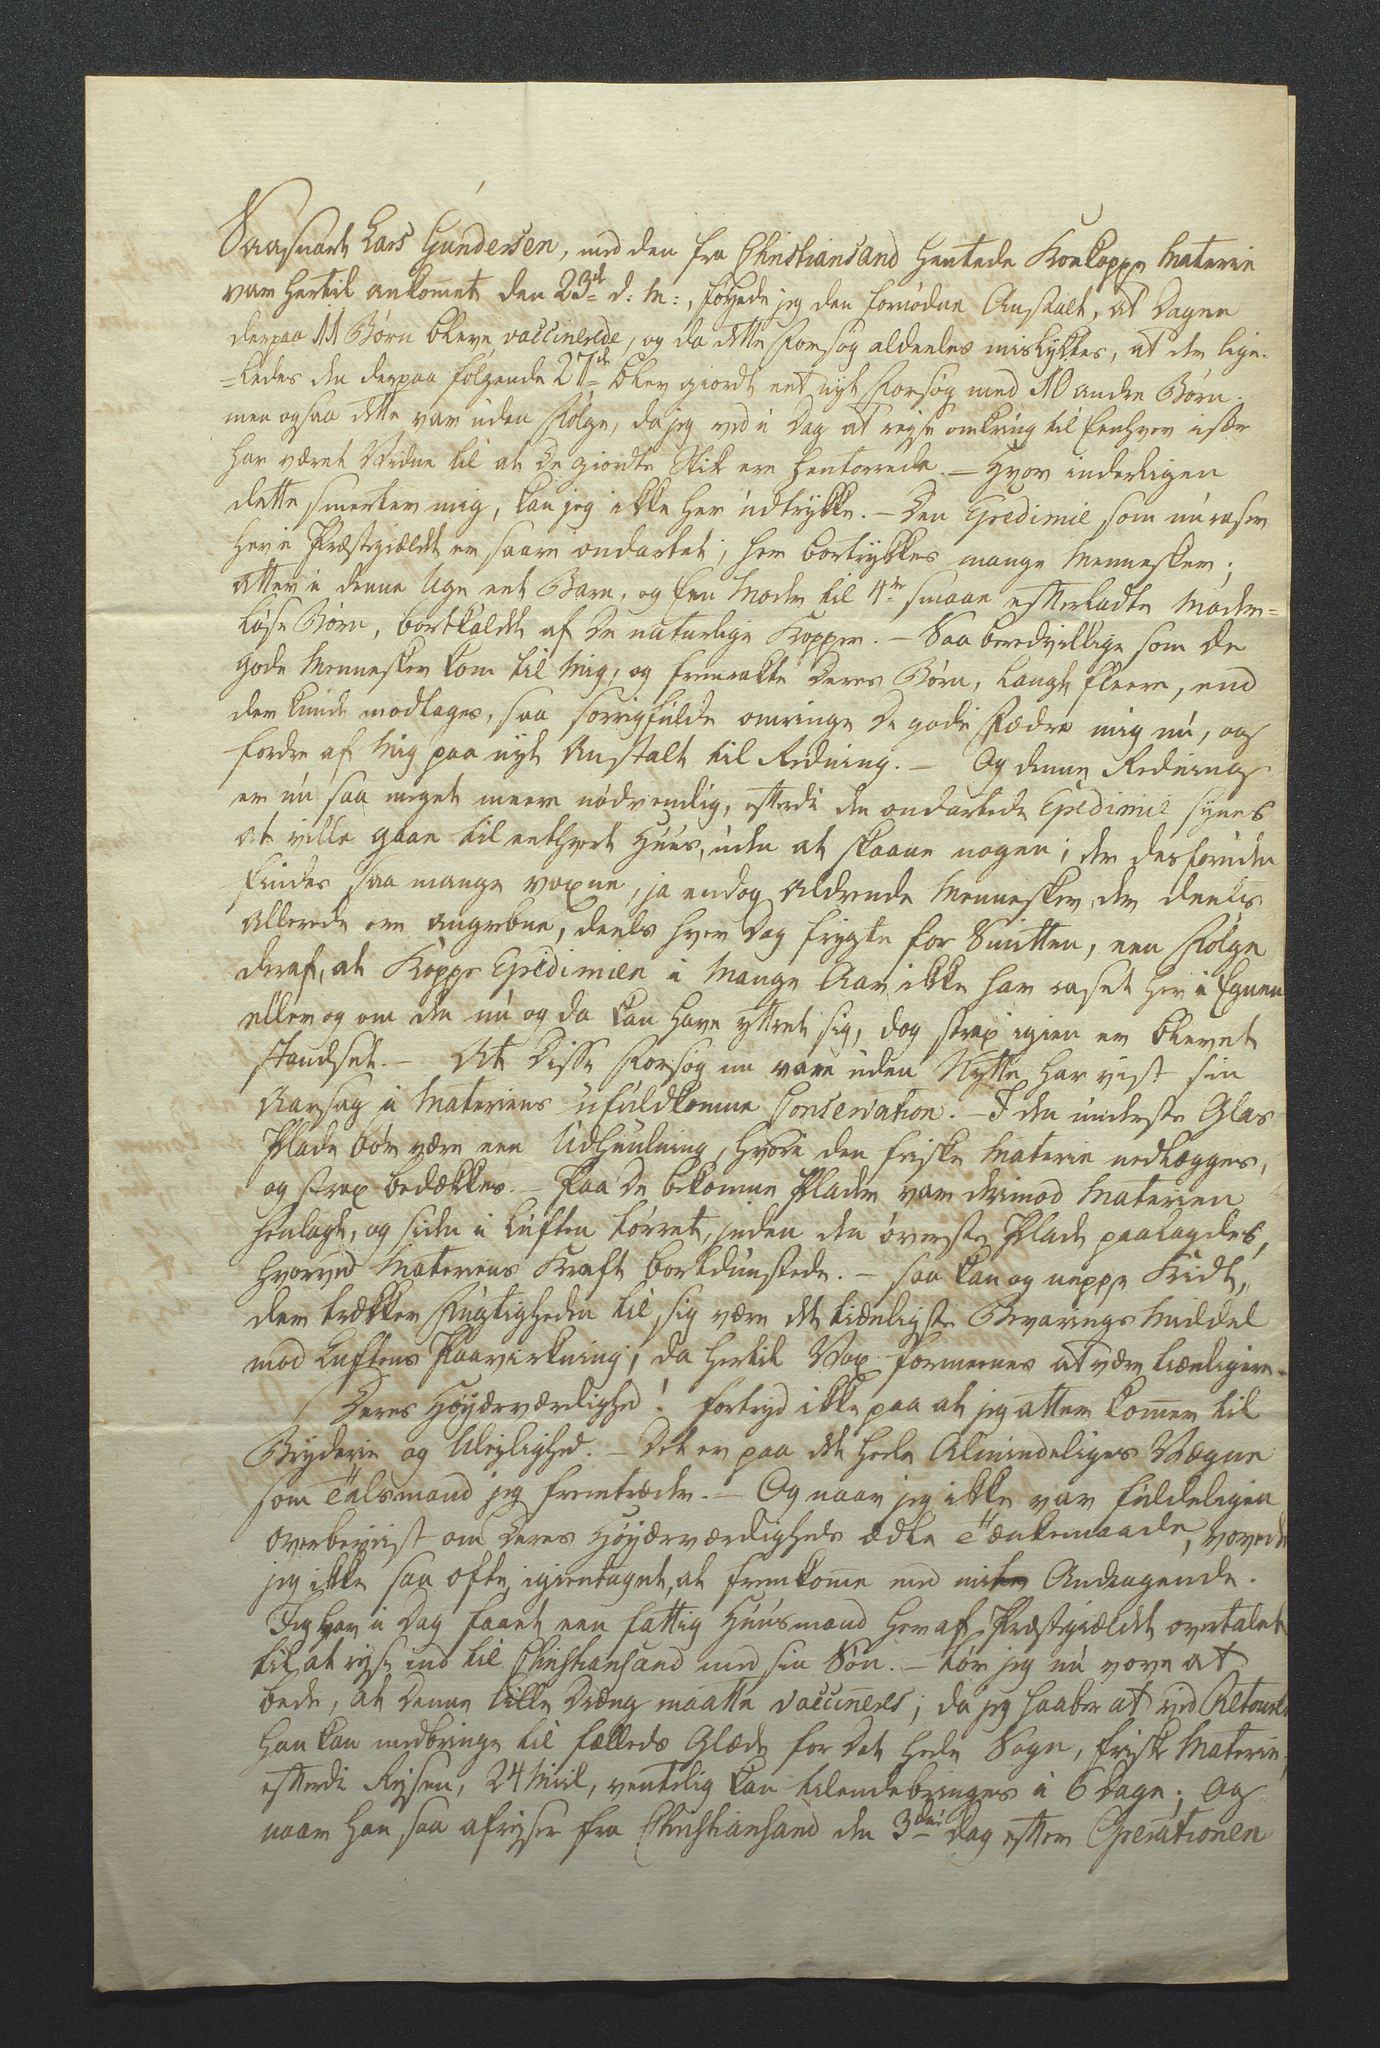 Saasnart Lars Gundersen, med den fra Christiansand hentede Koekoppe Materie
var hertil ankomet den 23de d: M:, føyede jeg den fornødne Anstalt, at Dagen
derpaa 11 Børn bleve vaccinerede, og da dette Forsøg aldeeles mislykkes, at der lige-
=ledes den derpaa følgende 27de blev giordt eet nyt Forsøg med 10 andre Børn.
men ogsaa dette var uden Følge, da jeg ved i Dag at rejse omkring til Eenhver især
har været Vidne til at De giordte Stik ere hentørrede. – Hvor inderligen
dette smerter mig, kan jeg ikke her udtrykke. – Den Epedimie som nu raser
her i Præstegieldet er saare ondartet; her bortrykkes mange Mennesker;
atter i denne Uge eet Barn, og Een Moder til 4re smaae efterladte Moder-
løse Børn, bortkaldt af De naturlige Kopper. – Saa beredvillige som De
gode Mennesker kom til Mig, og fremrakte Deres Børn, langt fleere, end
der kunde modtages, saa sorrigfulde omringe De gode Fædre mig nu, og
fordre af Mig paa nyt Anstalt til Redning. – Og denne Redning
er nu saa meget meere nødvendig, efterdi den ondartede Epedimie synes
at ville gaae til eethvert Huus, uden at skaane nogen; der desforuden
findes saa mange voxne, ja endog Aldrende Mennesker, der deels
allerede ere angrebne, deels hver Dag frygte for Smitten, een Følge
deraf, at Koppe Epedimien i Mange Aar ikke har raset her i Egnen
eller og om den nu og da kan have yttret sig, dog strax igien er blevet
standset. – At Disse Forsøg nu vare uden Nytte har vist sin
Aarsag i Materiens ufuldkomne Conservation. – I den underste Glas
Plade bør være een Udhuulning, hvori den friske Materie nedlægges,
og strax bedækkes. – Paa De bekomne Plader var derimod Materien
henlagt, og siden i Luften tørret, inden den øverste Plade paalagdes,
hvorved Materiens Kraft bortdunstede. – saa kan og neppe Kidt,
der trækker Fugtigheden til sig være det tienligste Bevarings Middel
mod Luftens Paavirkning; da hertil Vox formeenes at være tienligere.
Deres Høyærværdighed! fortryd ikke paa at jeg atter komer til
Bryderie og Ulejlighed. – Det er paa det heele Almindeliges Vegne
som Talsmand jeg fremtræder. – Og naar jeg ikke var fuldeligen
overbeviist om Deres Høyærværdigheds ædle Tænkemaade, vovede
jeg ikke saa ofte, igientaget, at fremkome med mit Andragende.
Jeg har i Dag faaet een fattig Huusmand her af Præstegieldet overtalet
til at rejse ind til Christiansand med sin Søn. – tør jeg nu vove at
bede, at Denne lille Dræng maatte vaccineres; da jeg haaber at ved Retouren
han kan medbringe til fælleds Glæde for Det heele Sogn, frisk Materie,
efterdi Rejsen, 24 Miil, ventelig kan tilendebringes i 6 Dage; og
naar han saa afrejser fra Christiansand den 3die Dag efter Operationen